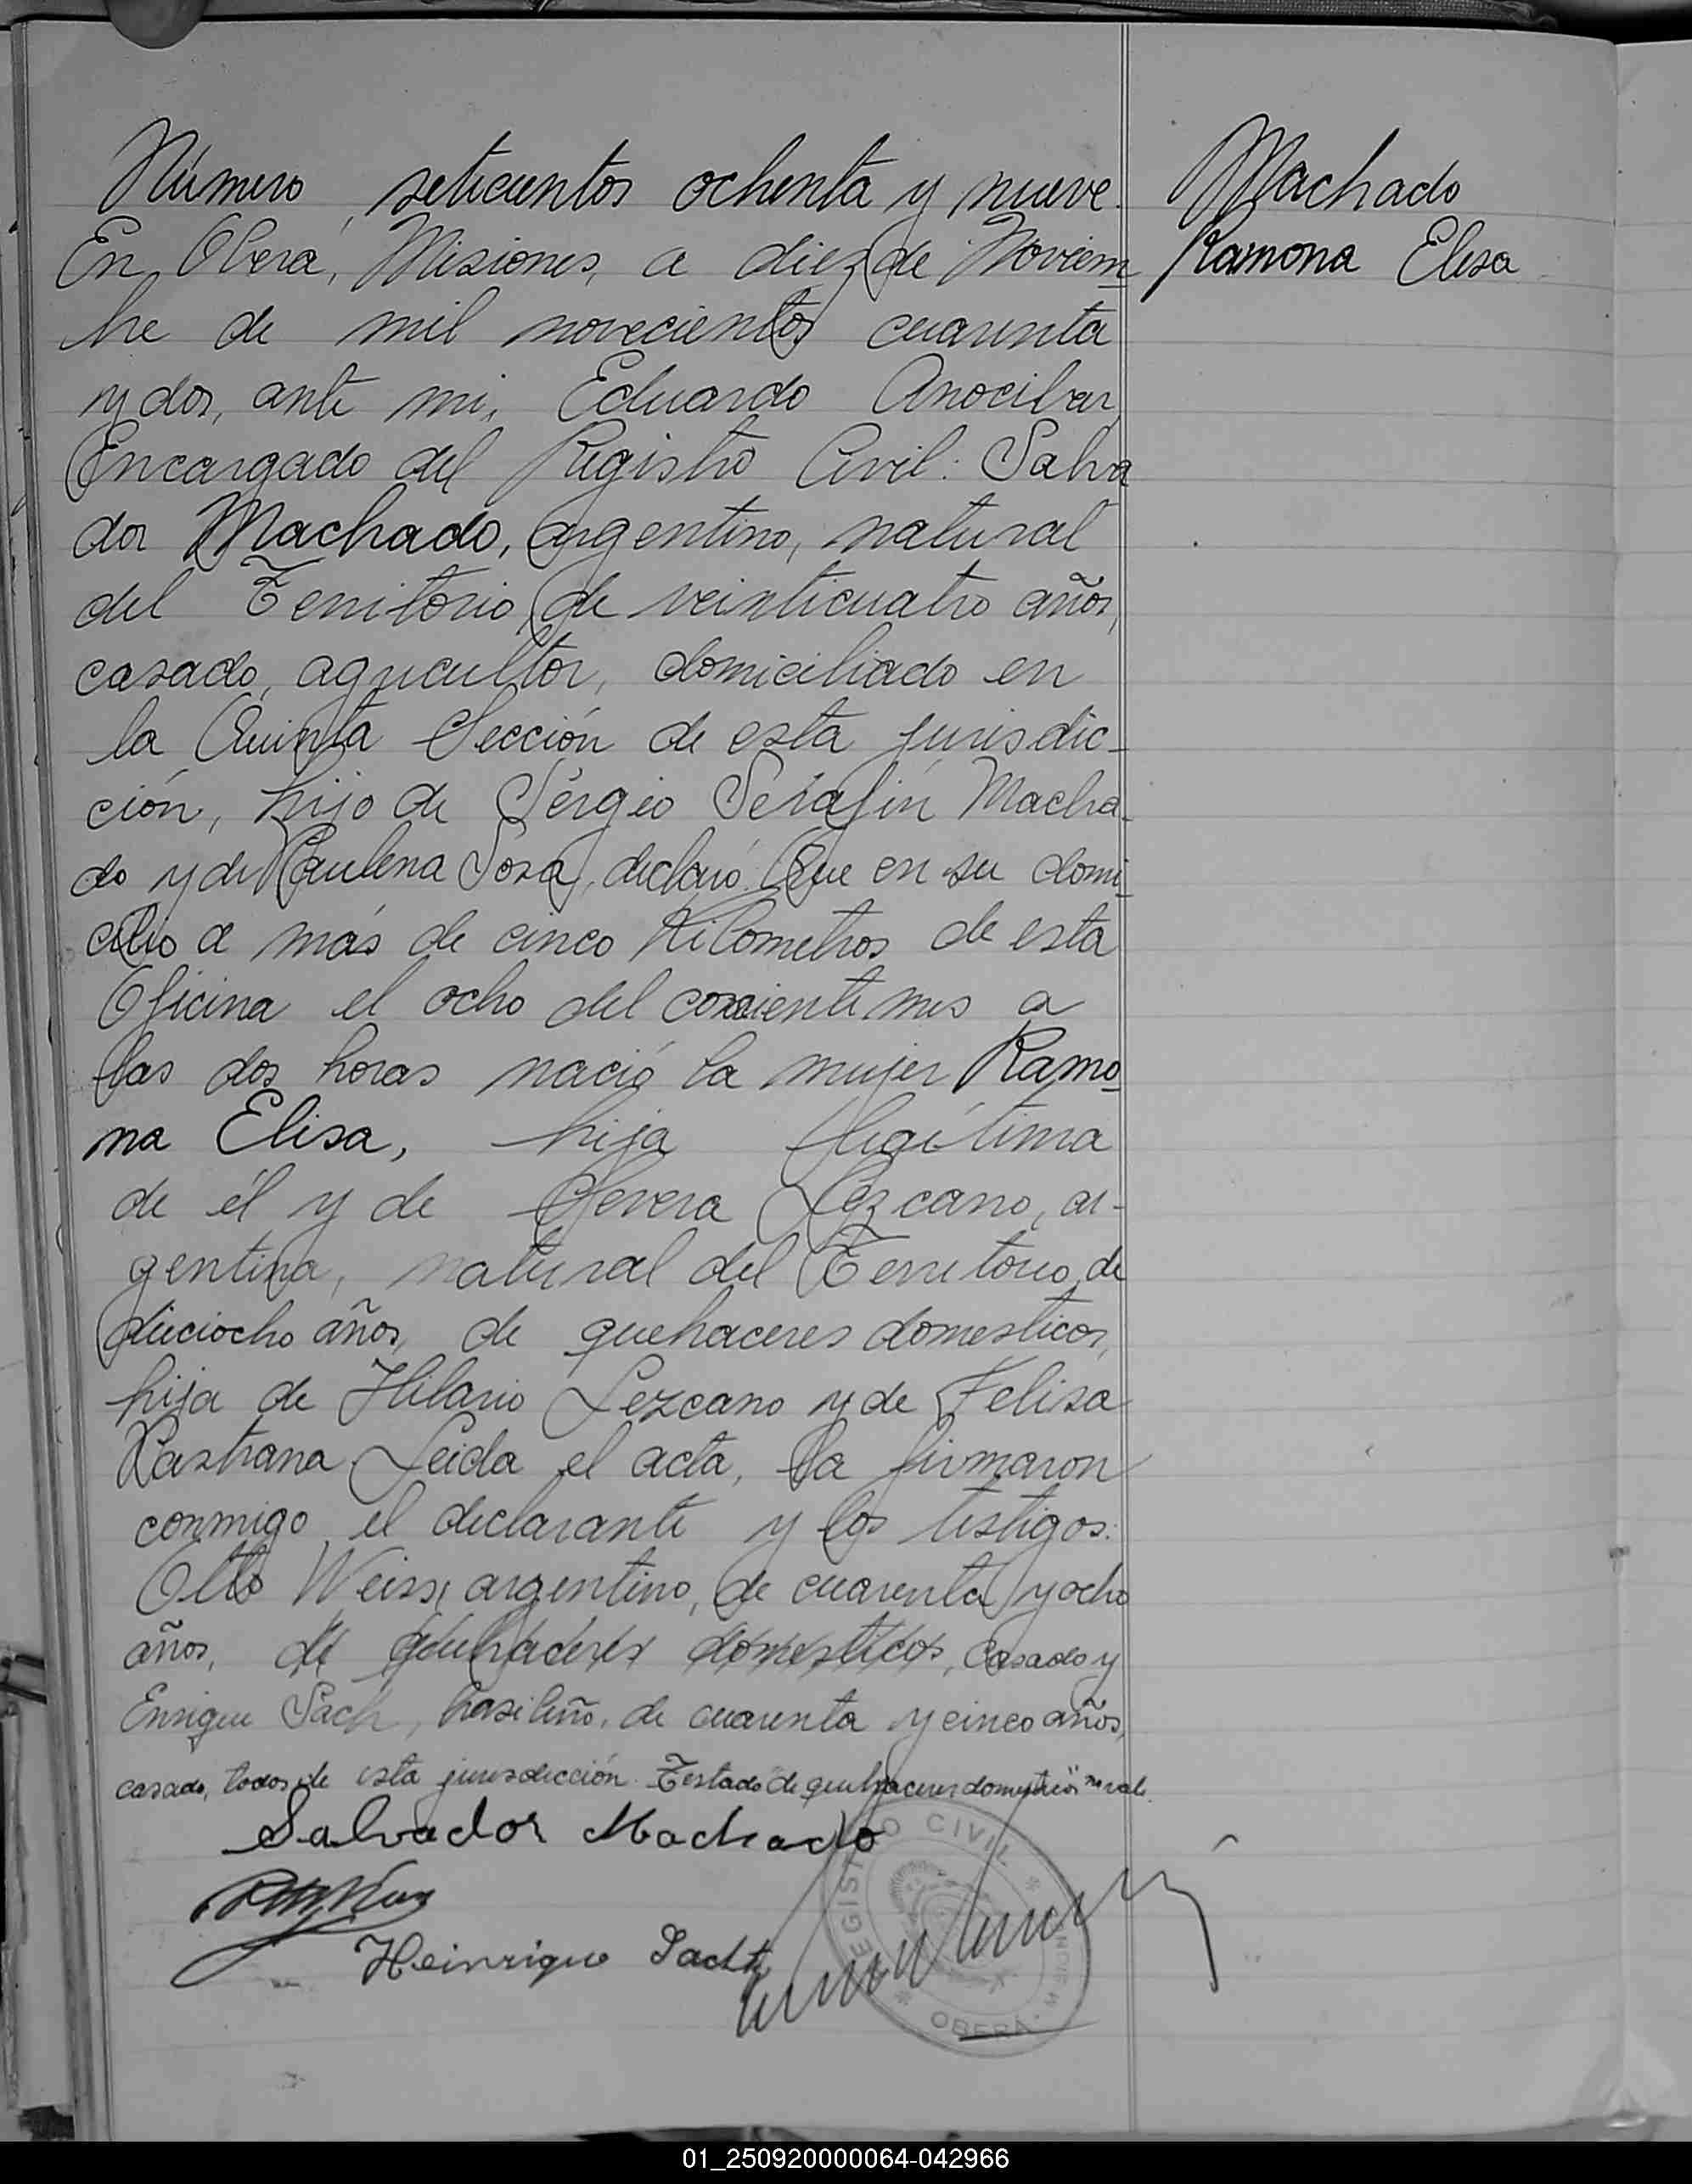 Número setecientos ochenta y nueve.
Machado
En Oberá, Misiones, a diez de Noviem
Ramona Elisa
bre de mil novecientos cuarenta
y dos, ante mi, Eduardo Anocibar
Encargado del Registro Civil: Salva
dor Machado, argentino, natural
del Territorio, de veinticuatro años,
casado, agricultor, domiciliado en
la Quinta Sección de esta jurisdic-
ción, hijo de Sergio Serafín Macha-
do y de Paulina Sosa, declaró: Que en su domi-
cilio a más de cinco Kilometros de esta
Oficina el ocho del corriente mes a
las dos horas nació la mujer Ramo-
na Elisa, hija legítima
de él y de Severa Lezcano, ar-
gentina, natural del Territorio, de
dieciocho años, de quehaceres domesticos,
hija de Hilario Lezcano y de Felisa
Pastrana. Leida el acta, la firmaron
conmigo el declarante y los testigos:
Otto Weiss, argentino, de cuarenta y ocho
años, de quehaceres domesticos, casado y
Enrique Sach, brasileño, de cuarenta y cinco años,
casado, todos de esta jurisdicción. Testado "de quehaceres domesticos" no vale.
Salvador Machado
Heinrique Sacht
REGISTRO CIVIL
OBERÁ
01_250920000064-042966